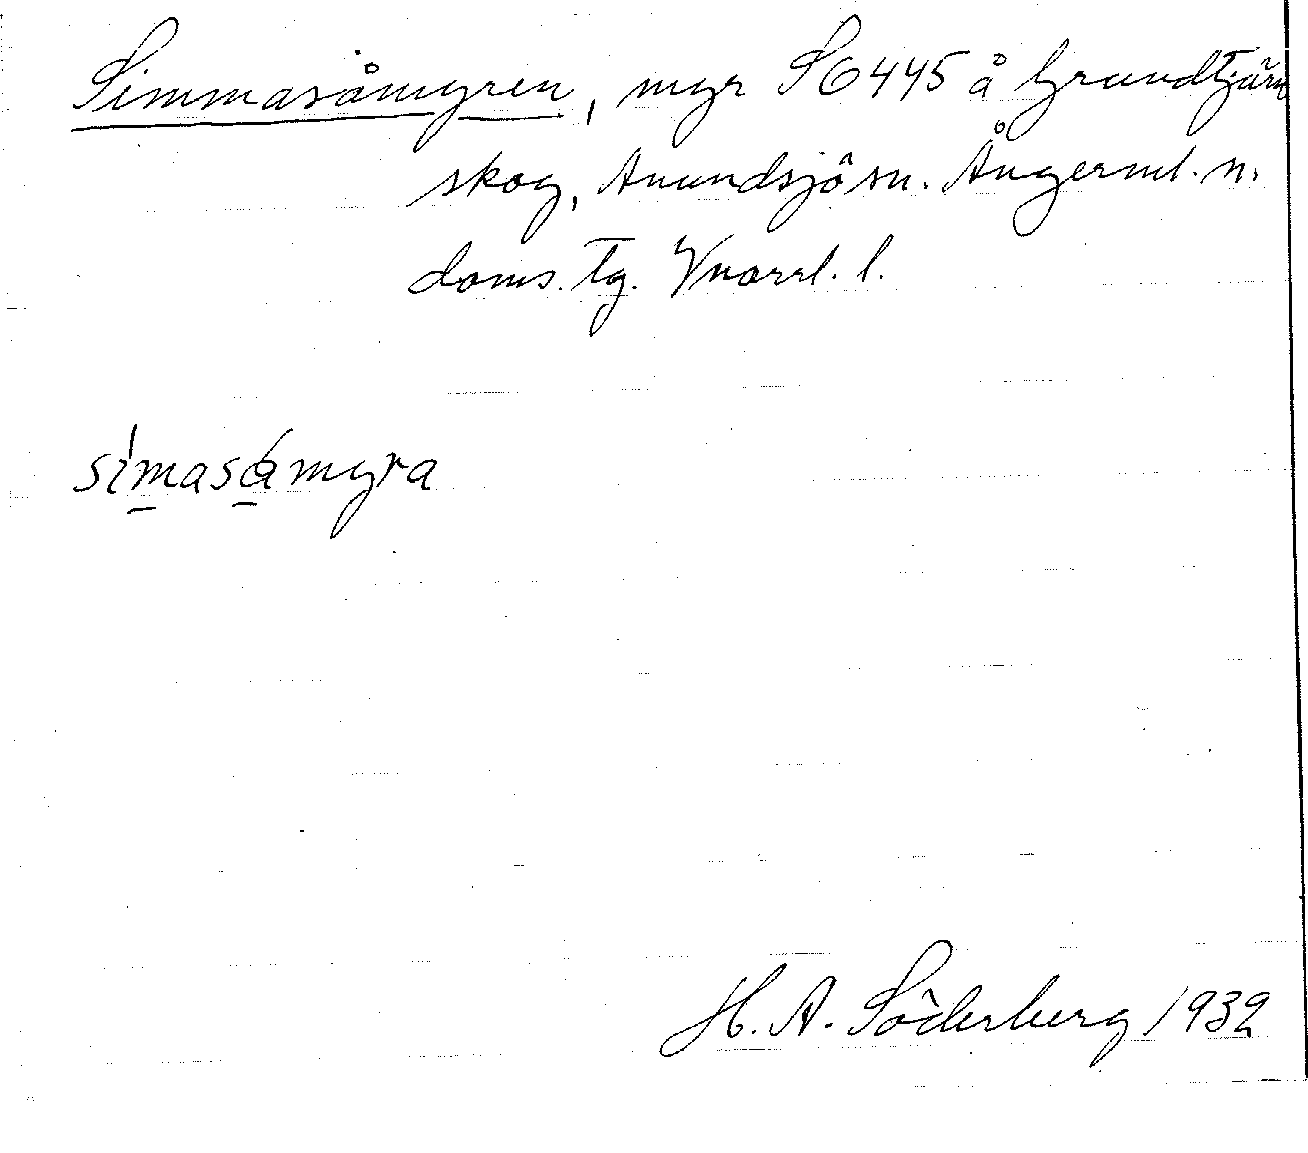 Simmasåmyren, myr S6445 å Grundtjärn
skog, Anundsjö sn. Ångerml. n.
doms. tg. Vnorrl. l.
simasåmyra
H. A. Söderberg 1932